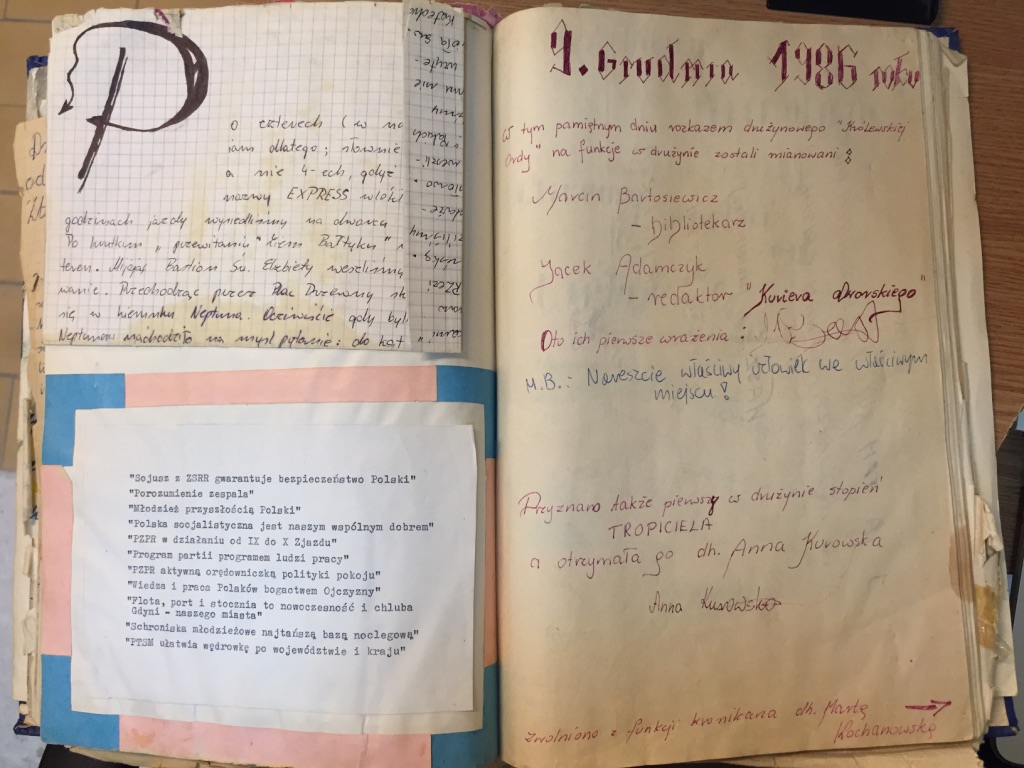 P
o czterech (w na
iam dlatego; słownie
a nie 4-ech, gdyż
nazwy EXPRESS wlókł
godzinach jazdy wysiedliśmy na dworcu
Po krótkim "przewitaniu" "Łzem Bałtyku"
teren. Mijając Bastion Św. Elżbiety weszliśmy
wanie. Przechodząc przez Plac Drzewny sk
się w kierunku Neptuna. Oczywiście gdy byli
Neptunem nachodziło na myśl pytanie: do kąt
"Sojusz z ZSRR gwarantuje bezpieczeństwo Polski"
"Porozumienie zespala"
"Młodzież przyszłością Polski"
"Polska socjalistyczna jest naszym wspólnym dobrem"
"PZPR w działaniu od IX do X Zjazdu"
"Program partii programem ludzi pracy"
"PZPR aktywną orędowniczką polityki pokoju"
"Wiedza i praca Polaków bogactwem Ojczyzny"
"Flota, port i stocznia to nowoczesność i chluba
Gdyni - naszego miasta"
"Schroniska młodzieżowe najtańszą bazą noclegową"
"PTSM ułatwia wędrówkę po województwie i kraju"
9. Grudnia 1986 roku
W tym pamiętnym dniu rozkazem drużynowego "Królewskiej
Ordy" na funkcje w drużynie zostali mianowani:
Marcin Bartosiewicz
- bibliotekarz
Jacek Adamczyk
- redaktor "Kuriera dworskiego"
Oto ich pierwsze wrażenia:
M.B.: Nareszcie właściwy człowiek we właściwym
miejscu!
Przyznano także pierwszy w drużynie stopień
TROPICIELA
a otrzymała go dh. Anna Kurowska
Anna Kurowska
Zwolniono z funkcji kronikarza dh. Martę
Kochanowską